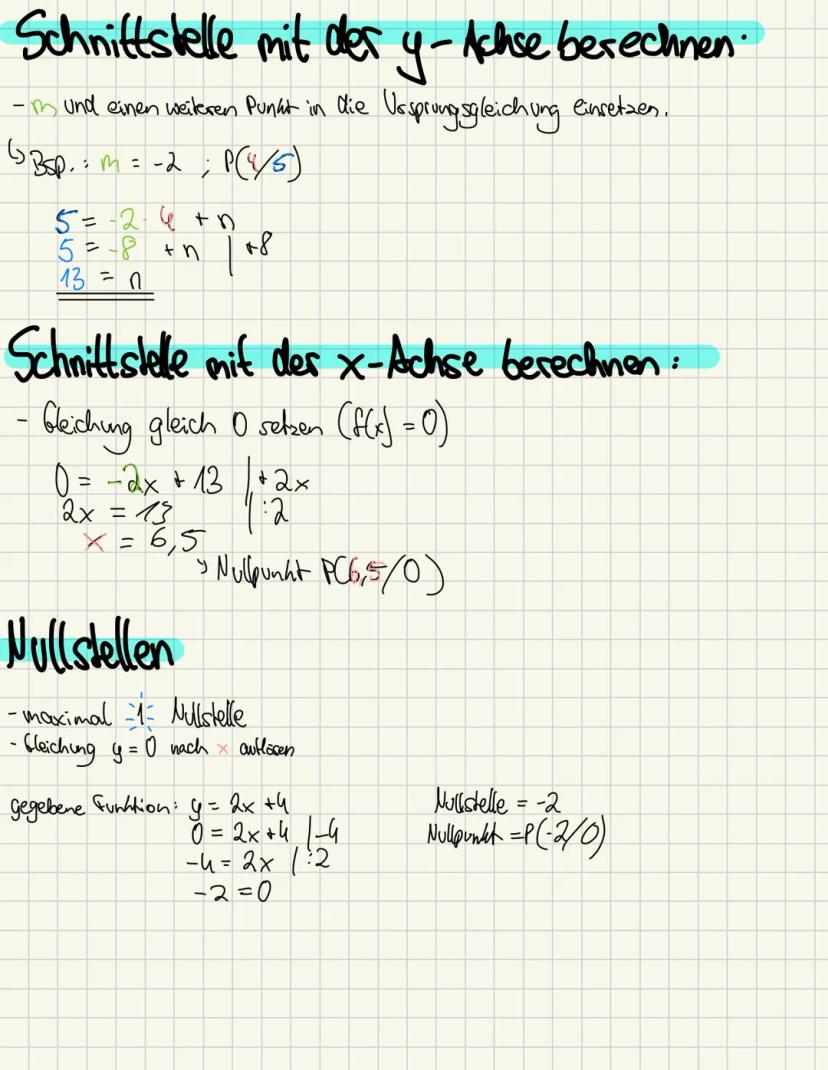 Schnittstelle mit der y-Achse berechnen:
- m und einen weiteren Punkt in die Ursprungsgleichung einsetzen.
↳ Bsp.: m = -2 ; P(4/5)
5 = -2 · 4 + n
5 = -8 + n | +8
13 = n
Schnittstelle mit der x-Achse berechnen:
- Gleichung gleich 0 setzen (f(x) = 0)
0 = -2x + 13 | + 2x
2x = 13 | :2
x = 6,5
↳ Nullpunkt P(6,5/0)
Nullstellen
- maximal 1 Nullstelle
- Gleichung y = 0 nach x auflösen
gegebene Funktion: y = 2x +4
0 = 2x +4 | -4
-4 = 2x | :2
-2 = 0
Nullstelle = -2
Nullpunkt = P(-2/0)